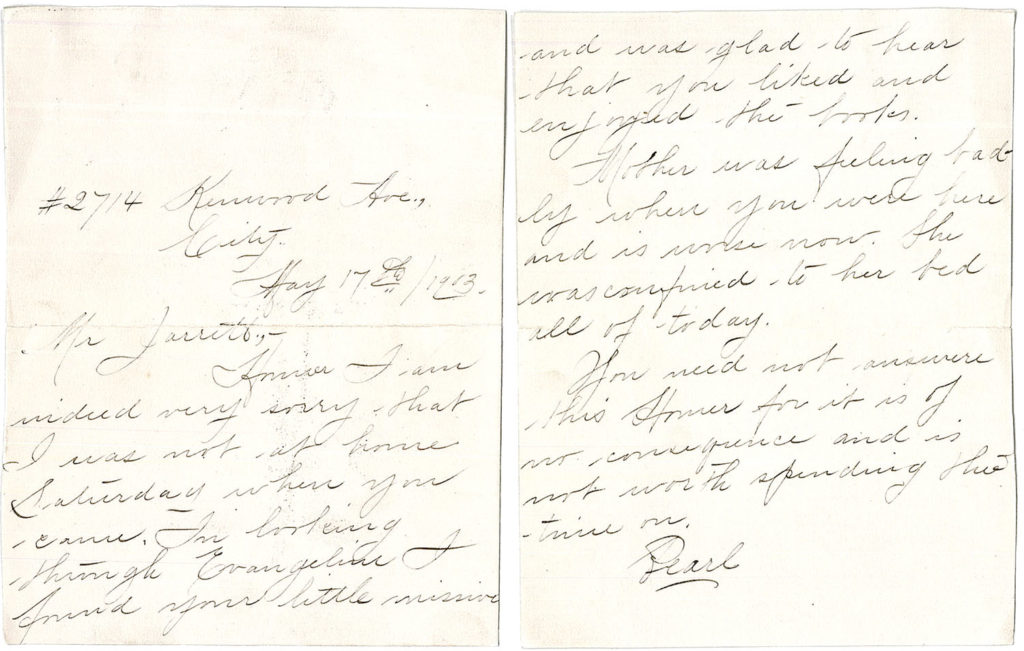 #2714 Kenwood Ave.,
City.
May 17th/1903.
Mr Jarrett,-
Homer I am
indeed very sorry that
I was not at home
Saturday when you
came. In looking
through Evangeline I
found your little missive
and was glad to hear
that you liked and
enjoyed the books.
Mother was feeling bad-
ly when you were here
and is worse now. She
was confined to her bed
all of today.
You need not answere
this Homer for it is of
no consequence and is
not worth spending the
time on.
Pearl